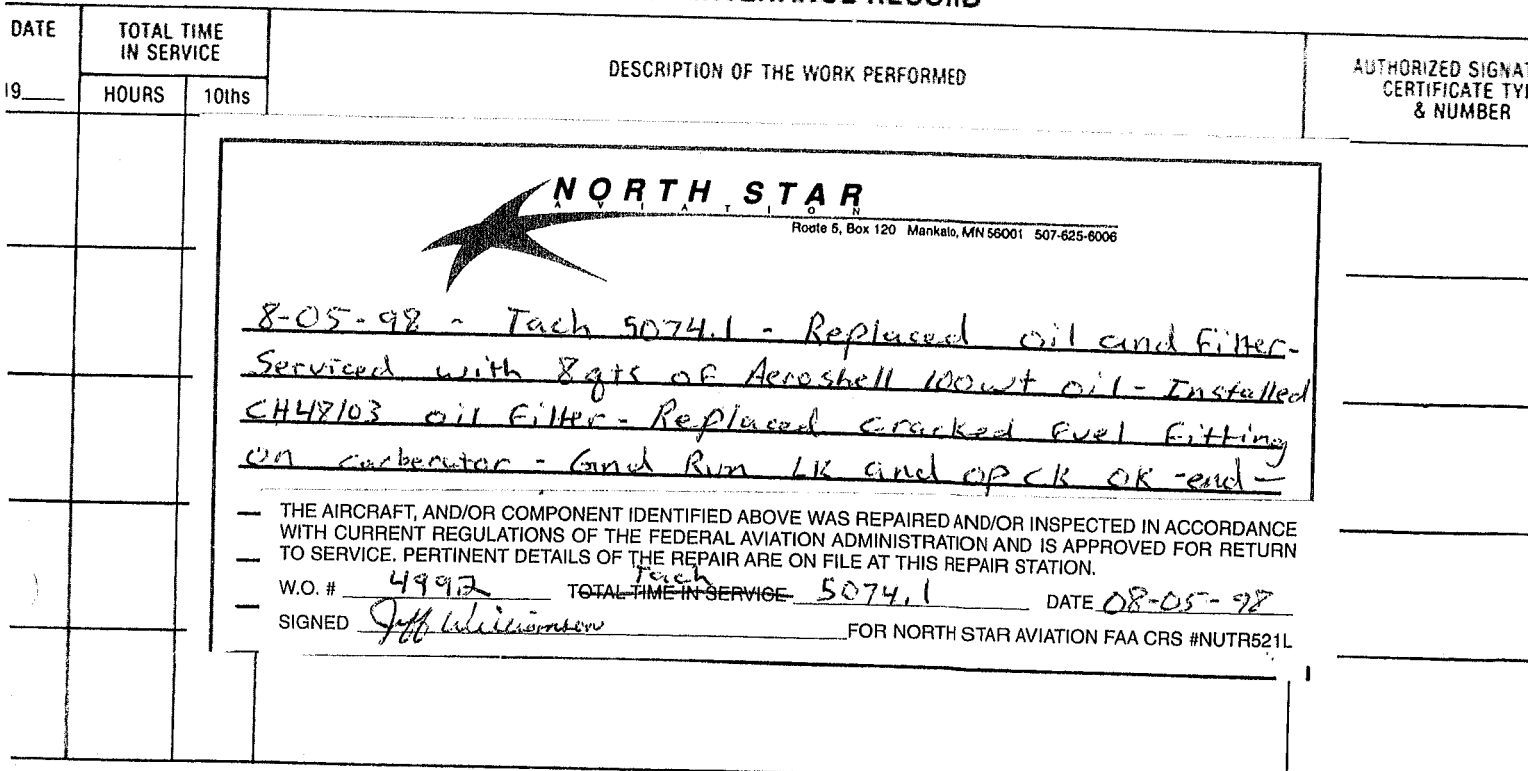 DATE
TOTAL TIME
IN SERVICE
DESCRIPTION OF THE WORK PERFORMED
CERTIFICATE
& NUMBER
AUTHORIZED
19___
HOURS
10ths
NORTH STAR
AVIATION
Route 5, Box 120 Mankato, MN 56001 507-625-6006
8-05-98 - Tach 5074.1 - Replaced oil and filter-
Serviced with 8qts of Aeroshell 100wt oil - Installed
CH48103 oil filter - Replaced cracked fuel fitting
on carberator - Gnd Run LK and op ck ok -end-
THE AIRCRAFT, AND/OR COMPONENT IDENTIFIED ABOVE WAS REPAIRED AND/OR INSPECTED IN ACCORDANCE
WITH CURRENT REGULATIONS OF THE FEDERAL AVIATION ADMINISTRATION AND IS APPROVED FOR RETURN
TO SERVICE. PERTINENT DETAILS OF THE REPAIR ARE ON FILE AT THIS REPAIR STATION.
Tach
W.O. # 4992 TOTAL TIME IN SERVICE 5074.1 DATE 08-05-98
SIGNED Jeff Williamson FOR NORTH STAR AVIATION FAA CRS #NUTR521L